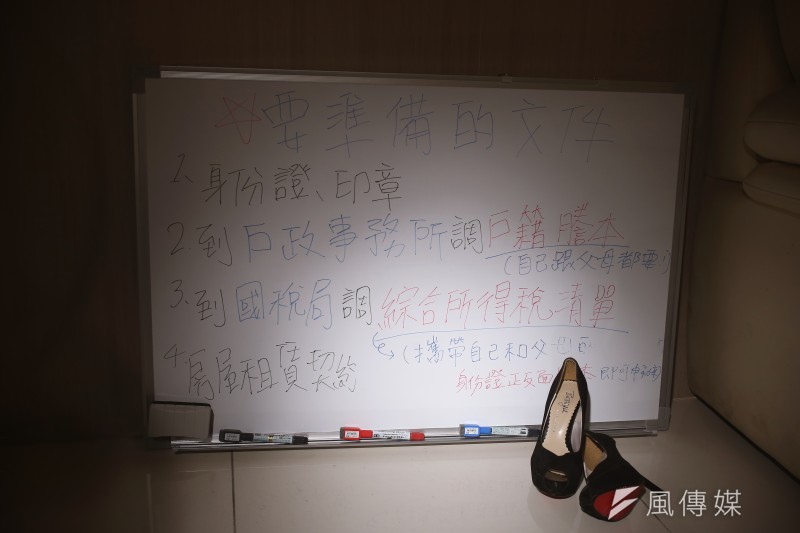 ☆要準備的文件
1、身份證、印章
2.到戶政事務所調戶籍謄本
(自己跟父母都要)
3.到國稅局調綜合所得稅清單
(攜帶自己和父
身份證正反面 本
4.房屋租賃契約
風傳媒